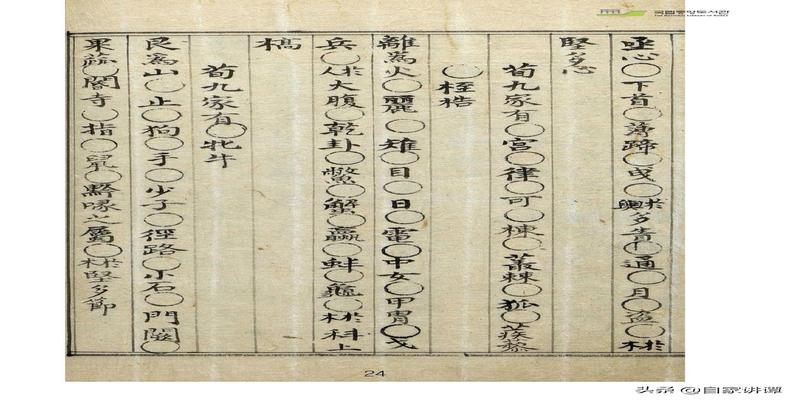 국립중앙도서관
THE NATIONAL LIBRARY OF KOREA
亟心○下首○薄蹄○曳○輿於多眚○通○月○盜○木於
堅多心
荀九家有○宮○律○可○棟○叢棘○狐○蒺藜
○桎梏
離爲火○麗○雉○目○日○電○中女○甲冑○戈
兵○人於大腹○乾卦○鱉○蟹○蠃○蚌○龜○木於科上
槁
荀九家有○牝牛
艮爲山○止○狗○手○少子○徑路○小石○門闕○
果蓏○閽寺○指○鼠○黔喙之屬○木於堅多節
24
头条 @自家讲谭